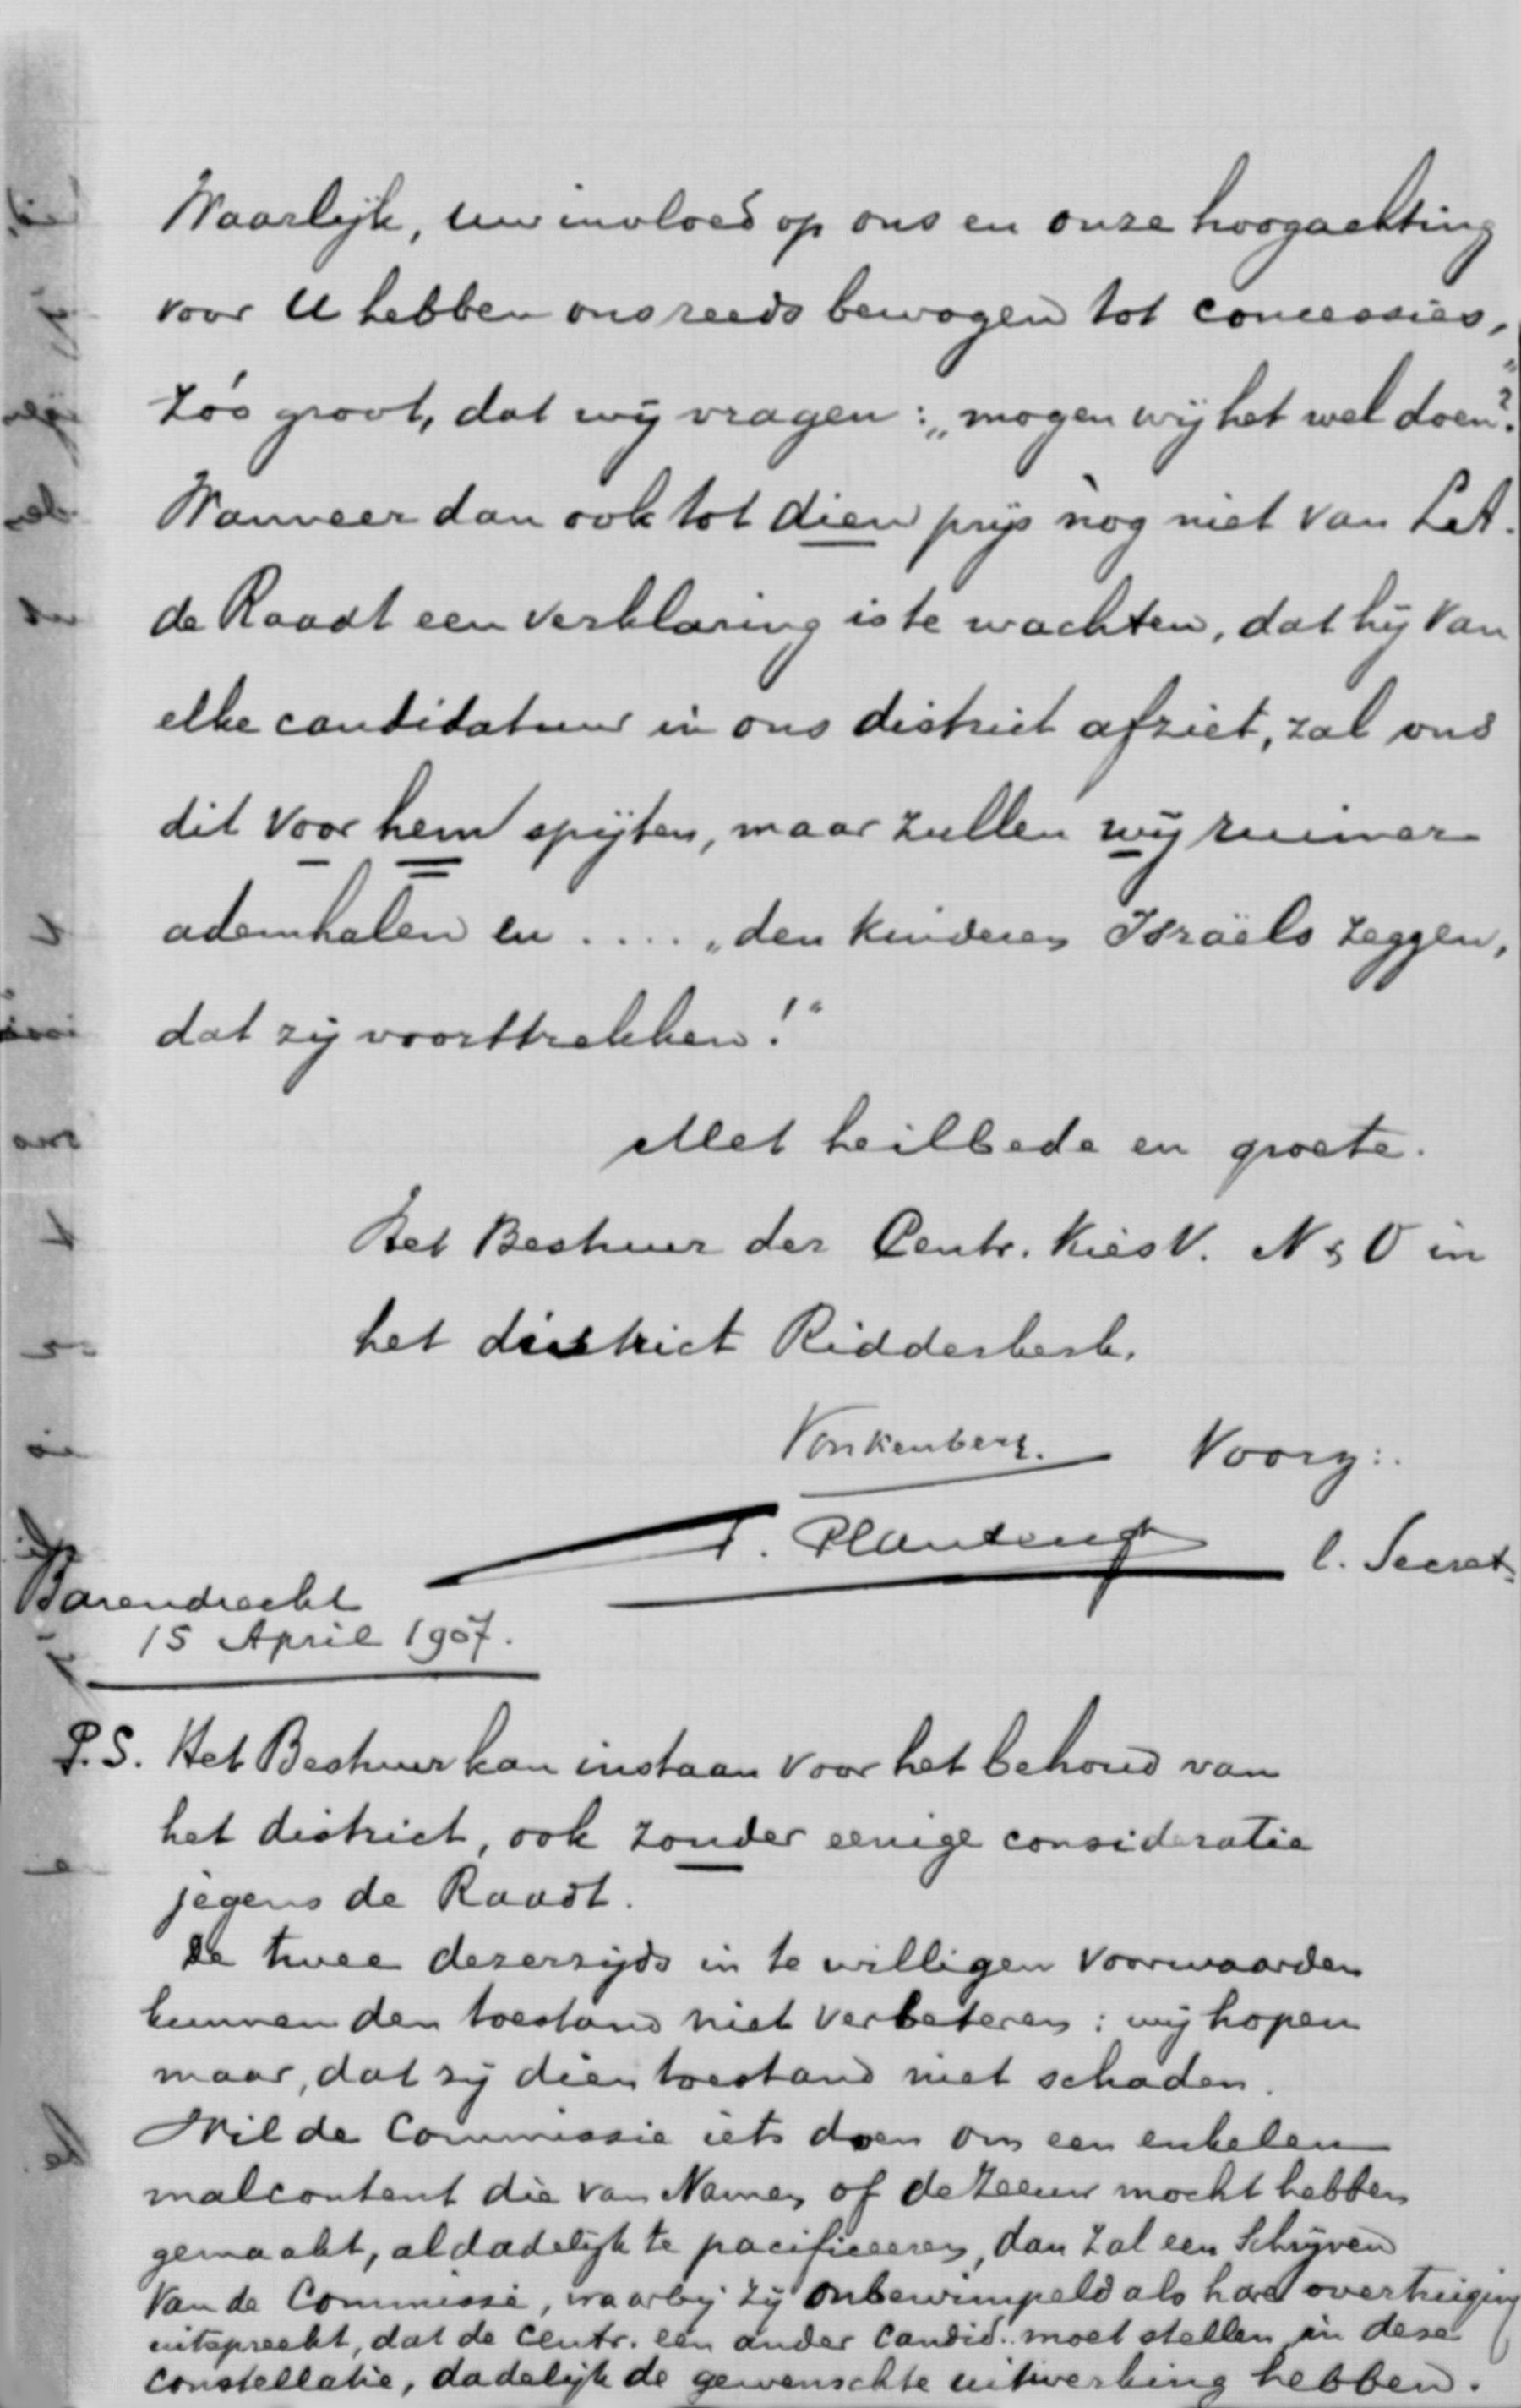 Waarlijk, uw invloed op ons en onze hoogachting
voor U hebben ons reeds bewogen tot concessies,
zóó groot, dat wij vragen: „mogen wij het wel doen?"
Wanneer dan ook tot dien prijs nòg niet van
de Raadt een verklaring is te wachten, dat hij van
elke candidatuur in ons district afziet, zal ons
dit voor hem spijten, maar zullen wij ruimer
ademhalen en .... „den kinderen Israëls zeggen,
dat zij voorttrekken!"
Met heilbede en groete.
Het Bestuur der Centr. Kiesv. N & O in
het district Ridderkerk.
Vonkenberg. Voorz:.
T. Plantenga l. Secret:
Barendrecht
15 April 1907.
P.S. Het Bestuur kan instaan voor het behoud van
het district, ook zonder eenige consideratie
jegens de Raadt.
De twee dezerzijds in te willigen voorwaarden
kunnen den toestand niet verbeteren: wij hopen
maar, dat zij dien toestand niet schaden.
Wil de Commissie iets doen om een enkelen
malcontent die van Namen of de Zeeuw mocht hebben
gemaakt, al dadelijk te pacificeeren, dan zal een Schrijven
van de Commissie, waarbij zij onbewimpeld als hare overtuiging
uitspreekt, dat de Centr. een ander Candid. moet stellen in deze
constellatie, dadelijk de gewenschte uitwerking hebben.